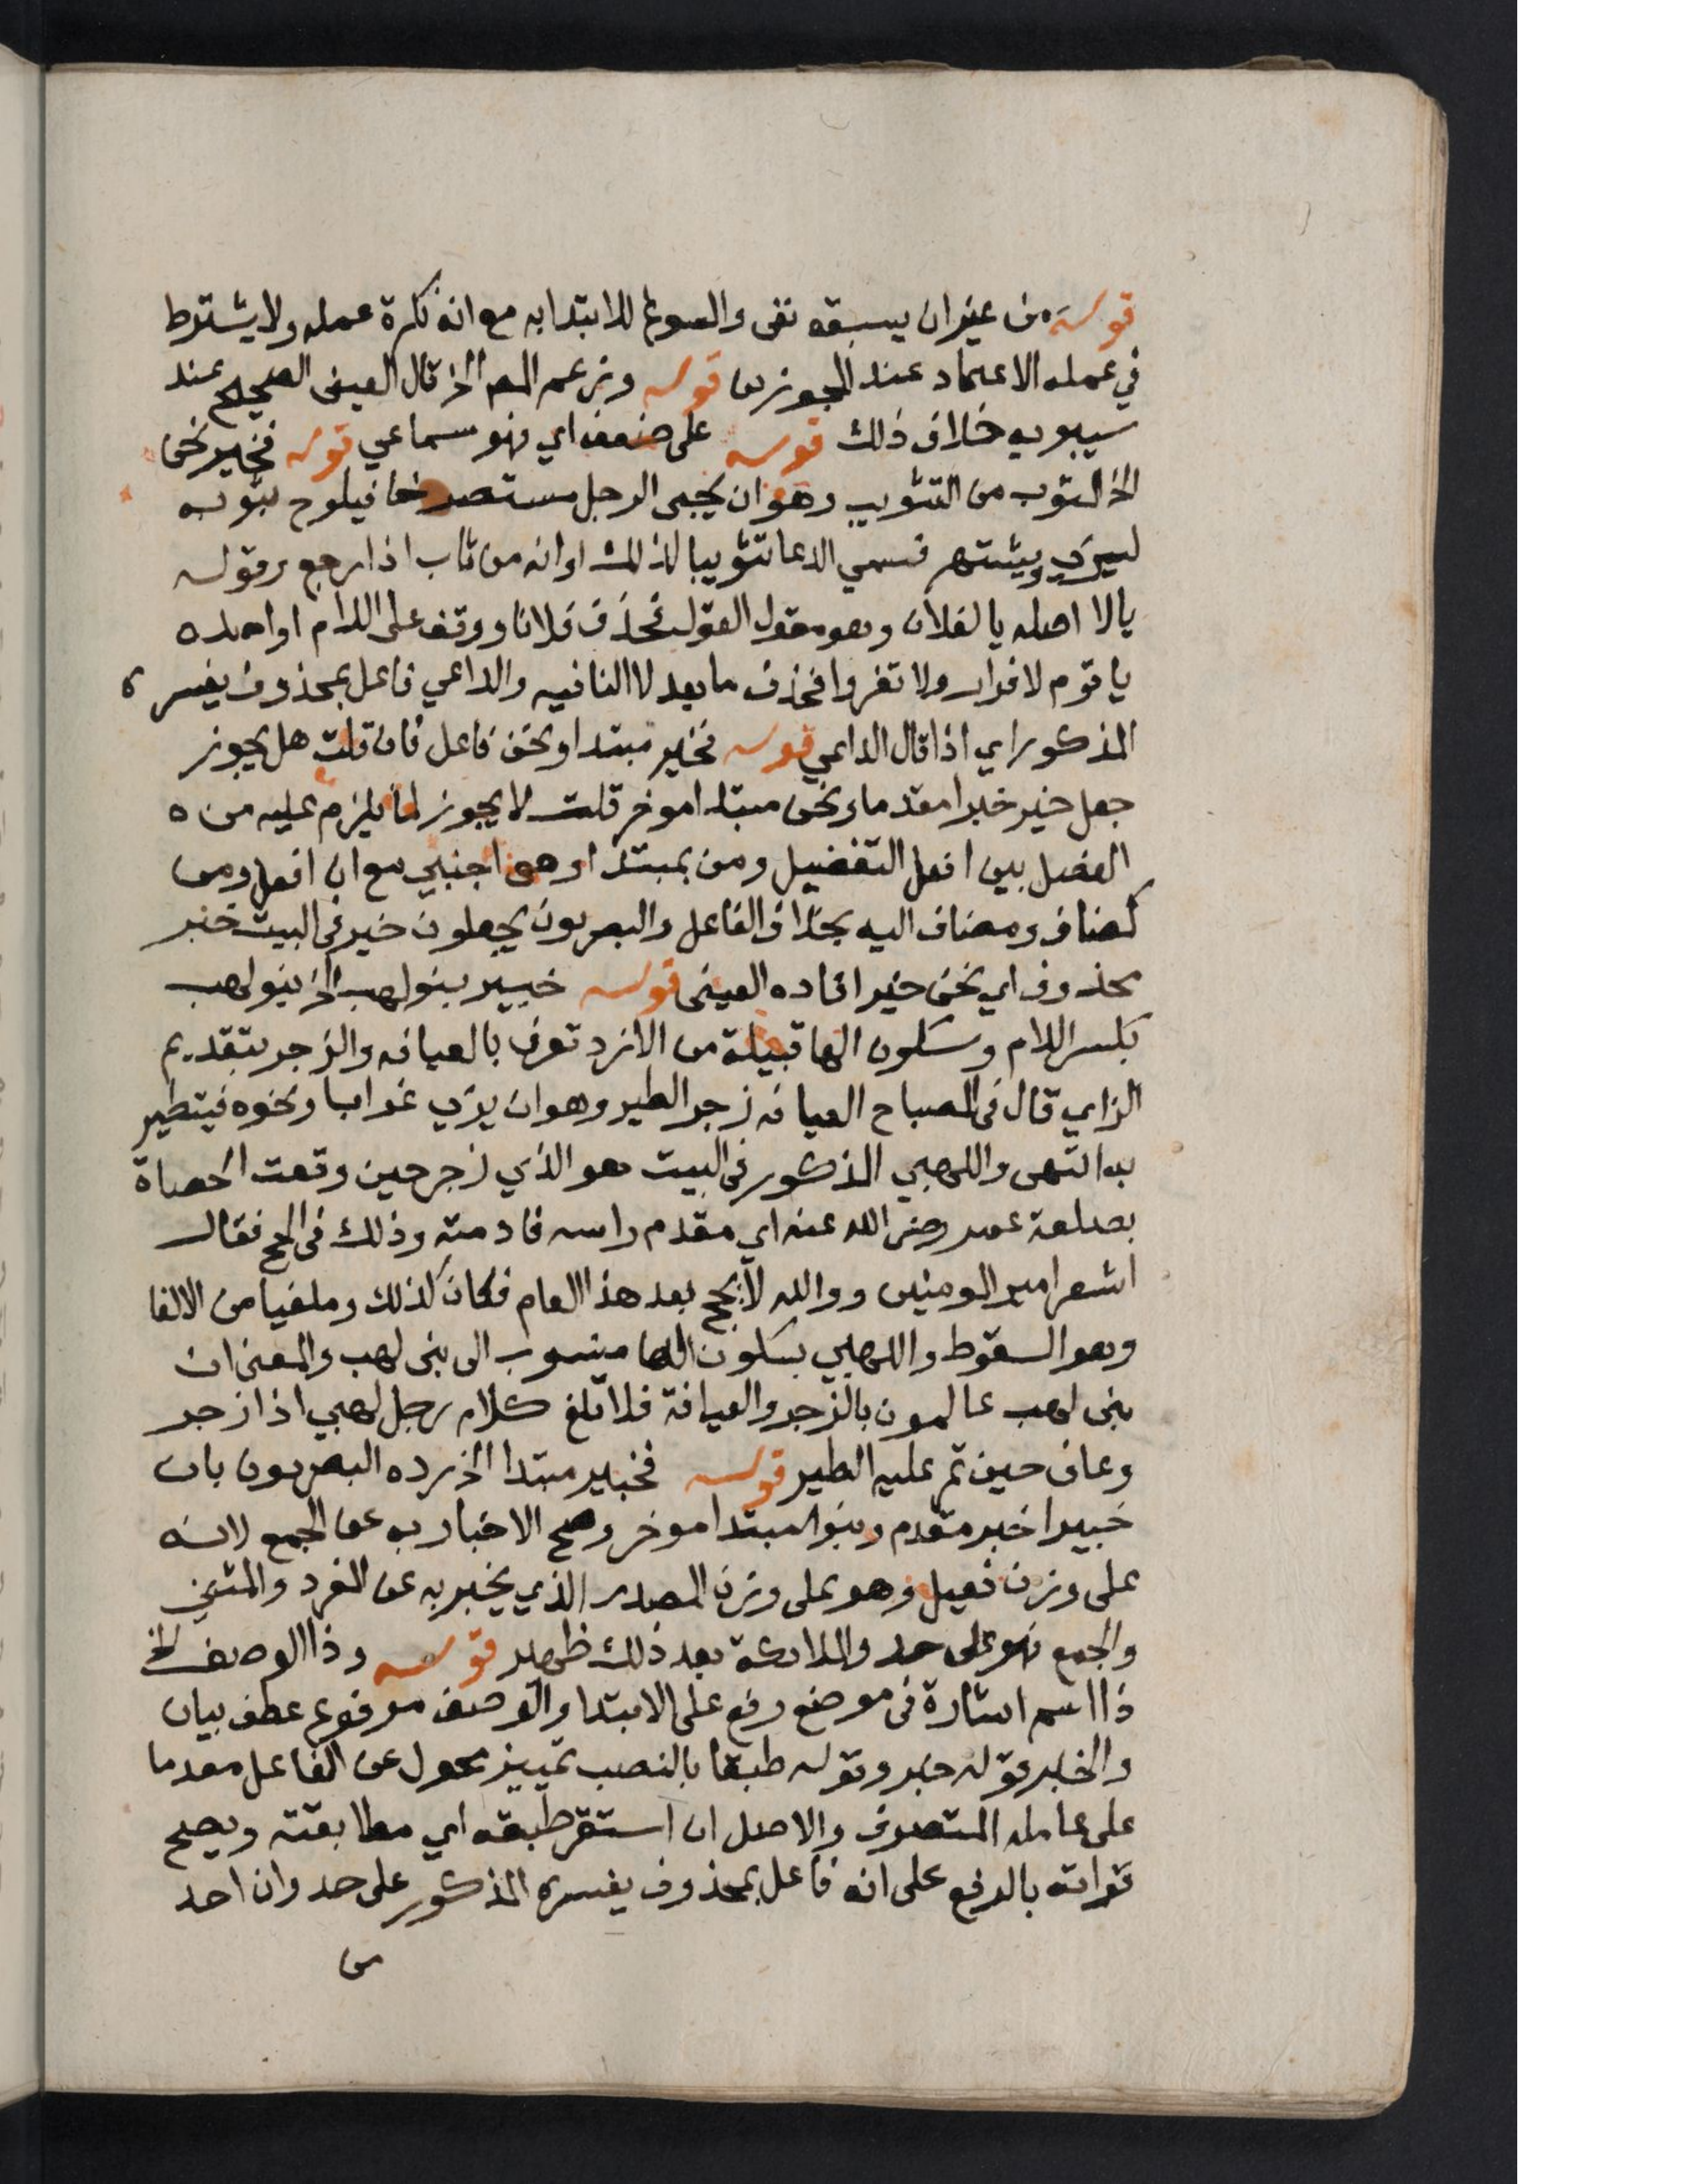 قوله من غير ان يسبقه نفى والمسوغ للابتدا به مع انه نكرة عمله ولا يشترط
في عمله الاعتماد عند المجوزين قوله وزعم المص الخ قال العينى الصحيح عند
سيبويه خلاف ذلك قوله على ضعف اي فهو سماعي قوله فخير نحن
الخ المثوب من التثويب وهو ان يجى الرجل مستصرخا فيلوح بثوبه
ليرى ويشتهر فسمي الدعا تثويبا لذلك او انه من ثاب اذا رجع وقوله
يالا اصله يا لفلان وهو مقول القول فحذف فلانا ووقف على اللام او اصله
يا قوم لا فرار ولا تفروا فحذف ما بعد لا النافيه والداعي فاعل بمحذوف يفسره
المذكور اي اذا قال الداعي قوله فخير مبتدا ونحن فاعل فان قلت هل يجوز
جعل خير خبرا مقدما ونحن مبتدا موخر قلت لا يجوز لما يلزم عليه من
الفصل بين افعل التفضيل ومن بمبتدا وهو اجنبي مع ان افعل ومن
كمضاف ومضاف اليه بخلاف الفاعل والبصريون يجعلون خير في البيت خبر
محذوف اي نحن خير افاده العينى قوله خبير بنو لهب الخ بنو لهب
بكسر اللام وسكون الها قبيلة من الازد تعرف بالعيافه والزجر بتقديم
الزاي قال في المصباح العيافه زجر الطير وهو ان يرى غرابا ونحوه فيتطير
به انتهى واللهبي المذكور في البيت هو الذي زجر حين وقعت الحصاة
بصلعة عمر رضى الله عنه اي مقدم راسه فادمته وذلك في الحج فقال
اشعر امير المومنين ووالله لا يحج بعد هذا العام فكان كذلك وملغيا من الالغا
وهو السقوط واللهبي بسكون الها منسوب الى بنى لهب والمعنى ان
بنى لهب عالمون بالزجر والعيافة فلا تلغ كلام رجل لهبي اذا زجر
وعاف حين تمر عليه الطير قوله فخبير مبتدا الخ رده البصريون بان
خبيرا خبر مقدم وبنو مبتدا موخر وصح الاخبار به عن الجمع لانه
على وزن فعيل وهو على وزن المصدر الذي يخبر به عن المفرد والمثنى
والجمع فهو على حد والملائكة بعد ذلك ظهير قوله وذا الوصف الخ
ذا اسم اشارة في موضع رفع على الابتدا والوصف مرفوع عطف بيان
والخبر قوله خبر وقوله طبقا بالنصب تمييز محول عن الفاعل مقدما
على عامله المتصرف والاصل ان استقر طبقه اي مطابقته ويصح
قراته بالرفع على انه فاعل بمحذوف يفسره المذكور على حد وان احد
من